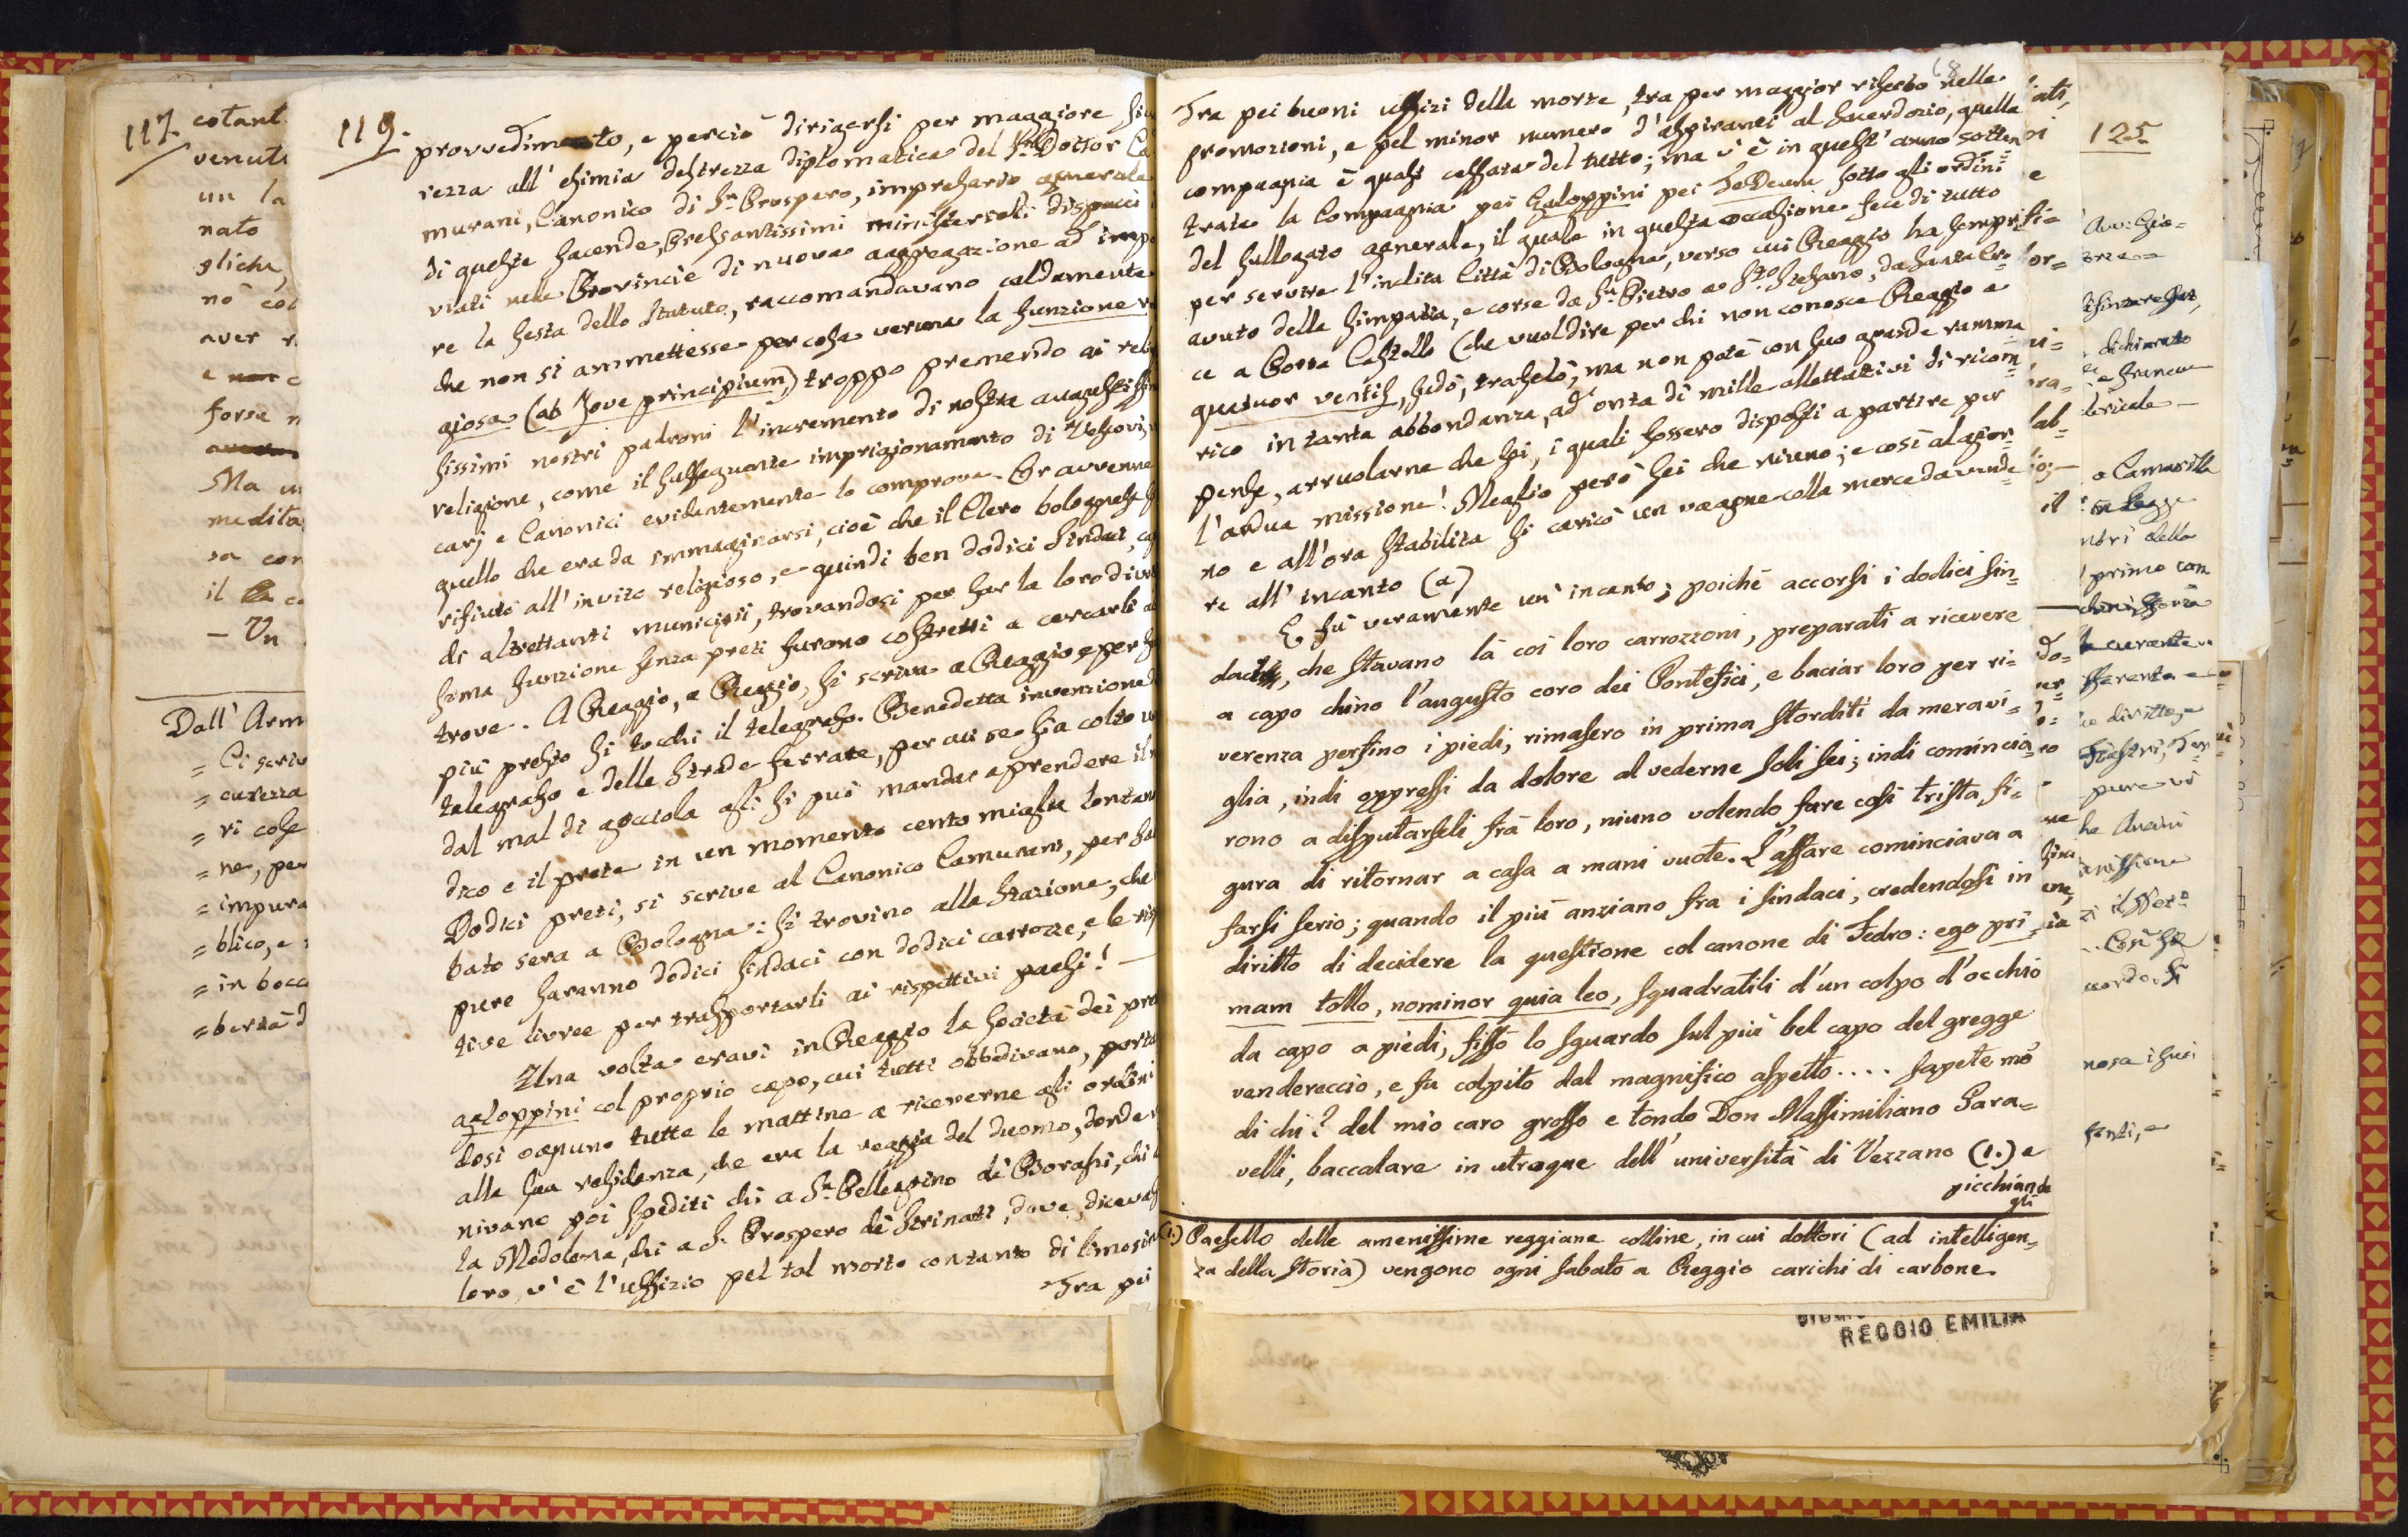 117.
cotant.
venut
un la
nato
gliche,
no col
aver r.
e non c
forse n
Ma un
medita
sa con
il
– Un
Dall' Arm
= Ci scriv
= curezza
= ri cose
= ne, per
= impura
= blico, e
= in bocc
= bertà d
119.
provvedimento, e perciò dirigersi per maggiore sicu
rezza all' esimia destrezza diplomatica del Sr. Dottor Ca
murani, Canonico di Sn. Prospero, impresario generale
di queste facende. Pressantissimi ministeriali dispacci
viati nelle Provincie di nuova aggregazione ad impo
re la festa dello Statuto, raccomandavano caldamente
che non si ammettesse per cosa veruna la funzione re
giosa (ab Jove principium) troppo premendo ai reli
sissimi nostri padroni l'incremento di nostra augustissim
religione, come il susseguente imprigionamento di Vescovi, v
carj e Canonici evidentemente lo comprova. Or avvenne
quello che era da immaginarsi, cioè che il Clero bolognese
rifiutò all' invito religioso, e quindi ben dodici Sindaci, ca
di altrettanti municipii, trovandosi per far la loro divot
sima funzione senza preti furono costretti a cercarli al
trove. A Reggio, a Reggio, si scriva a Reggio, e per fa
più presto si tocchi il telegrafo. Benedetta invenzione d
telegrafo e delle strade ferrate, per cui se sia colto u
dal mal di gocciola egli si può mandar a prendere il
dico e il prete in un momento cento miglia lontan
Dodici preti, si scrive al Canonico Camurani, per sa
bato sera a Bologna: si trovino alla Stazione, che
pure saranno dodici sindaci con dodici carrozze, e le risp
tive livree per trasportarli ai rispettivi paesi! —
Una volta eravi in Reggio la società dei pre
galoppini col proprio capo, cui tutti obbedivano, porta
dosi ognuno tutte le mattine a riceverne gli ordini
alla sua residenza, che era la reggia del duomo, donde v
nivano poi spediti chi a Sn. Pellegrino di Borasi, chi a
la Modolena, chi a S. Prospero de Strinati, dove, dicevas
loro, v'è l'uffizio pel tal morto con tanto di limosin
Tra pei
68
Tra pei buoni uffizi della morte, tra per maggior riserbo nelle
promozioni, e pel minor numero d'aspiranti al sacerdozio, quella
compagnia è quasi cessata del tutto; ma v'è in quest' anno sotten=
trata la Compagnia pei galoppini pei TeDeum sotto gli ordini
del sullogato generale, il quale in questa occasione fece di tutto
per servire l'inclita Città di Bologna, verso cui Reggio ha sempre
avuto della simpatia, e corse da Sn. Pietro a Sto. Stefano, da Santa Cro=
ce a Porta Castello (che vuol dire per chi non conosce Reggio a
quatuor ventis, sudò, trafelò; ma non potè con suo grande ramma
rico in tanta abbondanza, ad onta di mille allettativi di ricom=
pense, arruolarne che sei, i quali fossero disposti a partire per
l'ardua missione! Meglio però sei che niuno; e così al gior=
no e all'ora stabilita si caricò un vagone colla merce da vende=
re all' incanto (a)
E fu veramente un' incanto; poichè accorsi i dodici sin=
daci, che stavano là coi loro carrozzoni, preparati a ricevere
a capo chino l'augusto coro dei Pontefici, e baciar loro per ri=
verenza persino i piedi, rimasero in prima storditi da meravi=
glia, indi oppressi da dolore al vederne soli sei; indi comincia
rono a disputarseli frà loro, niuno volendo fare così trista fi=
gura di ritornar a casa a mani vuote. L'affare cominciava a
farsi serio; quando il più anziano fra i sindaci, credendosi in
diritto di decidere la questione col canone di Fedro: ego pri=
mam tollo, nominor quia leo, squadratili d'un colpo d'occhio
da capo a piedi, fissò lo sguardo sul più bel capo del gregge
vendereccio, e fu colpito dal magnifico aspetto.... sapete mò
di chi? del mio caro grosso e tondo Don Massimiliano Gara=
velli, baccalare in utroque dell' università di Vezzano (1.) e
picchiando
gli
(1.) Paesello delle amenissime reggiane colline, in cui dottori (ad intelligen=
za della storia) vengono ogni sabato a Reggio carichi di carbone.
REGGIO EMILIA
125
dichiarato
e francese
a Camarilla
in Legge
primo con
pure vi